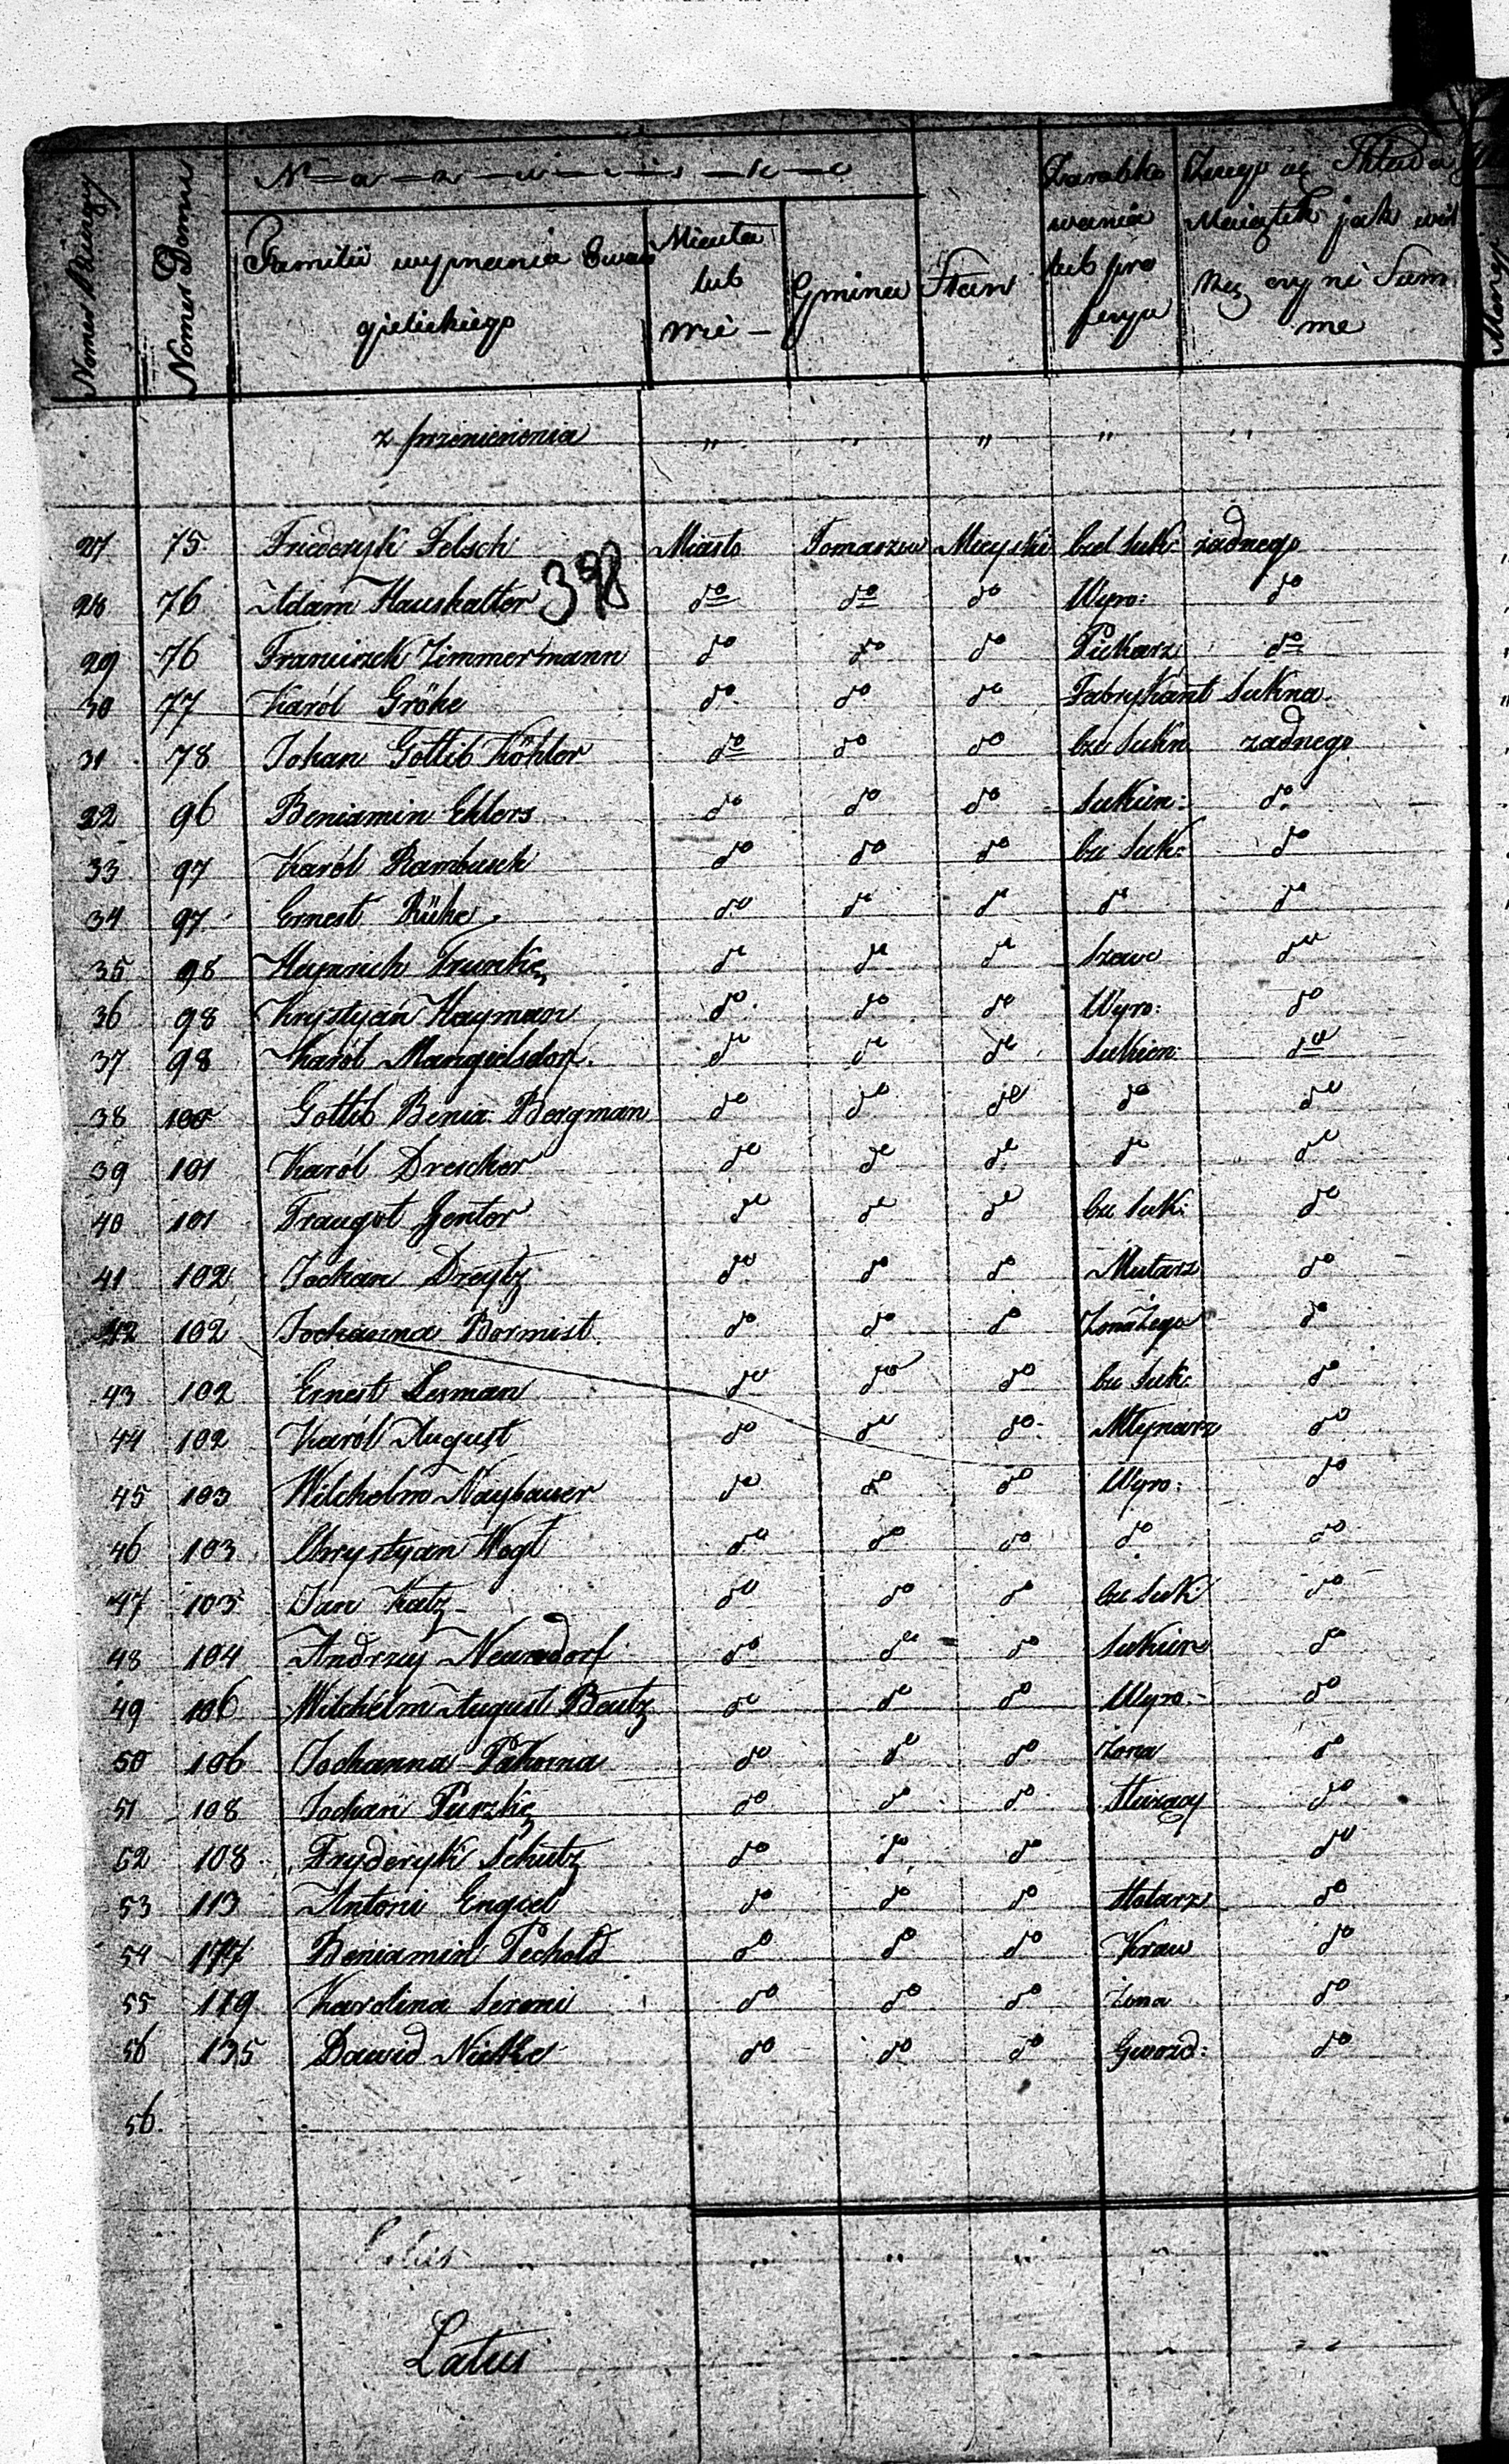 Numer Domu
N-a-z-w-i-s-k-o
Familii wyznania Ewan
gielickiego
Miasta
lub
Gmina
Stan
Zarobko
wania
lub pro
fesya
Maiątek jak wiel
Sum
me
z przeniesienia " " " " "
27 75 Friederyk Felsch Miasto Tomaszow Mieyski suk: żadnego
398
28 76 Adam Haushalter do do do Wyro: do
29 76 Franciszek Zimmermann do do do Piekarz do
30 77 Karól Gröke do do do Fabrykant Sukna
31 78 Johan Gottlib Köhler do do do żadnego
32 96 Beniamin Ehlers do do do Sukien: do
33 97 Karól Rambusch do do do cze Suk: do
34 97 Ernest Rühe do do do do do
35 98 Heynrich Trunke do do do Szewc do
36 98 Krystyan Hayman do do do Wyro: do
37 98 Karól Mangielsdorf do do do Sukien: do
38 100 Gottlib Benia: Bergman do do do do do
39 101 Karól Drescher do do do do do
40 101 Traugot Gentor do do do cze Suk: do
41 102 Jochan Dreytz do do do do
42 102 Jochanna Bormist do do do do
43 102 Ernest Lesman do do do cze Suk: do
44 102 Karól August do do do Młynarz do
45 103 Wilchelm Naybauer do do do Wyro: do
46 103 Chrystyan Wogt do do do do do
47 103 Jan Katz do do do cze Suk: do
48 104 Andrzey Neundorf do do do Sukien do
49 106 Wilchelm August Beutz do do do Wyro: do
50 106 Jochanna Pakorna do do do żona do
51 108 Jochan Purzke do do do Służący do
52 108 Fryderyk Schutz do do do do
53 113 Antoni Engiel do do do Stolarz do
54 Beniamin Pechold do do do Kraw do
55 119 Karolina do do do żona do
56 135 Dawid do do do Gwozd: do
56.
Latus " " " " "
Latus